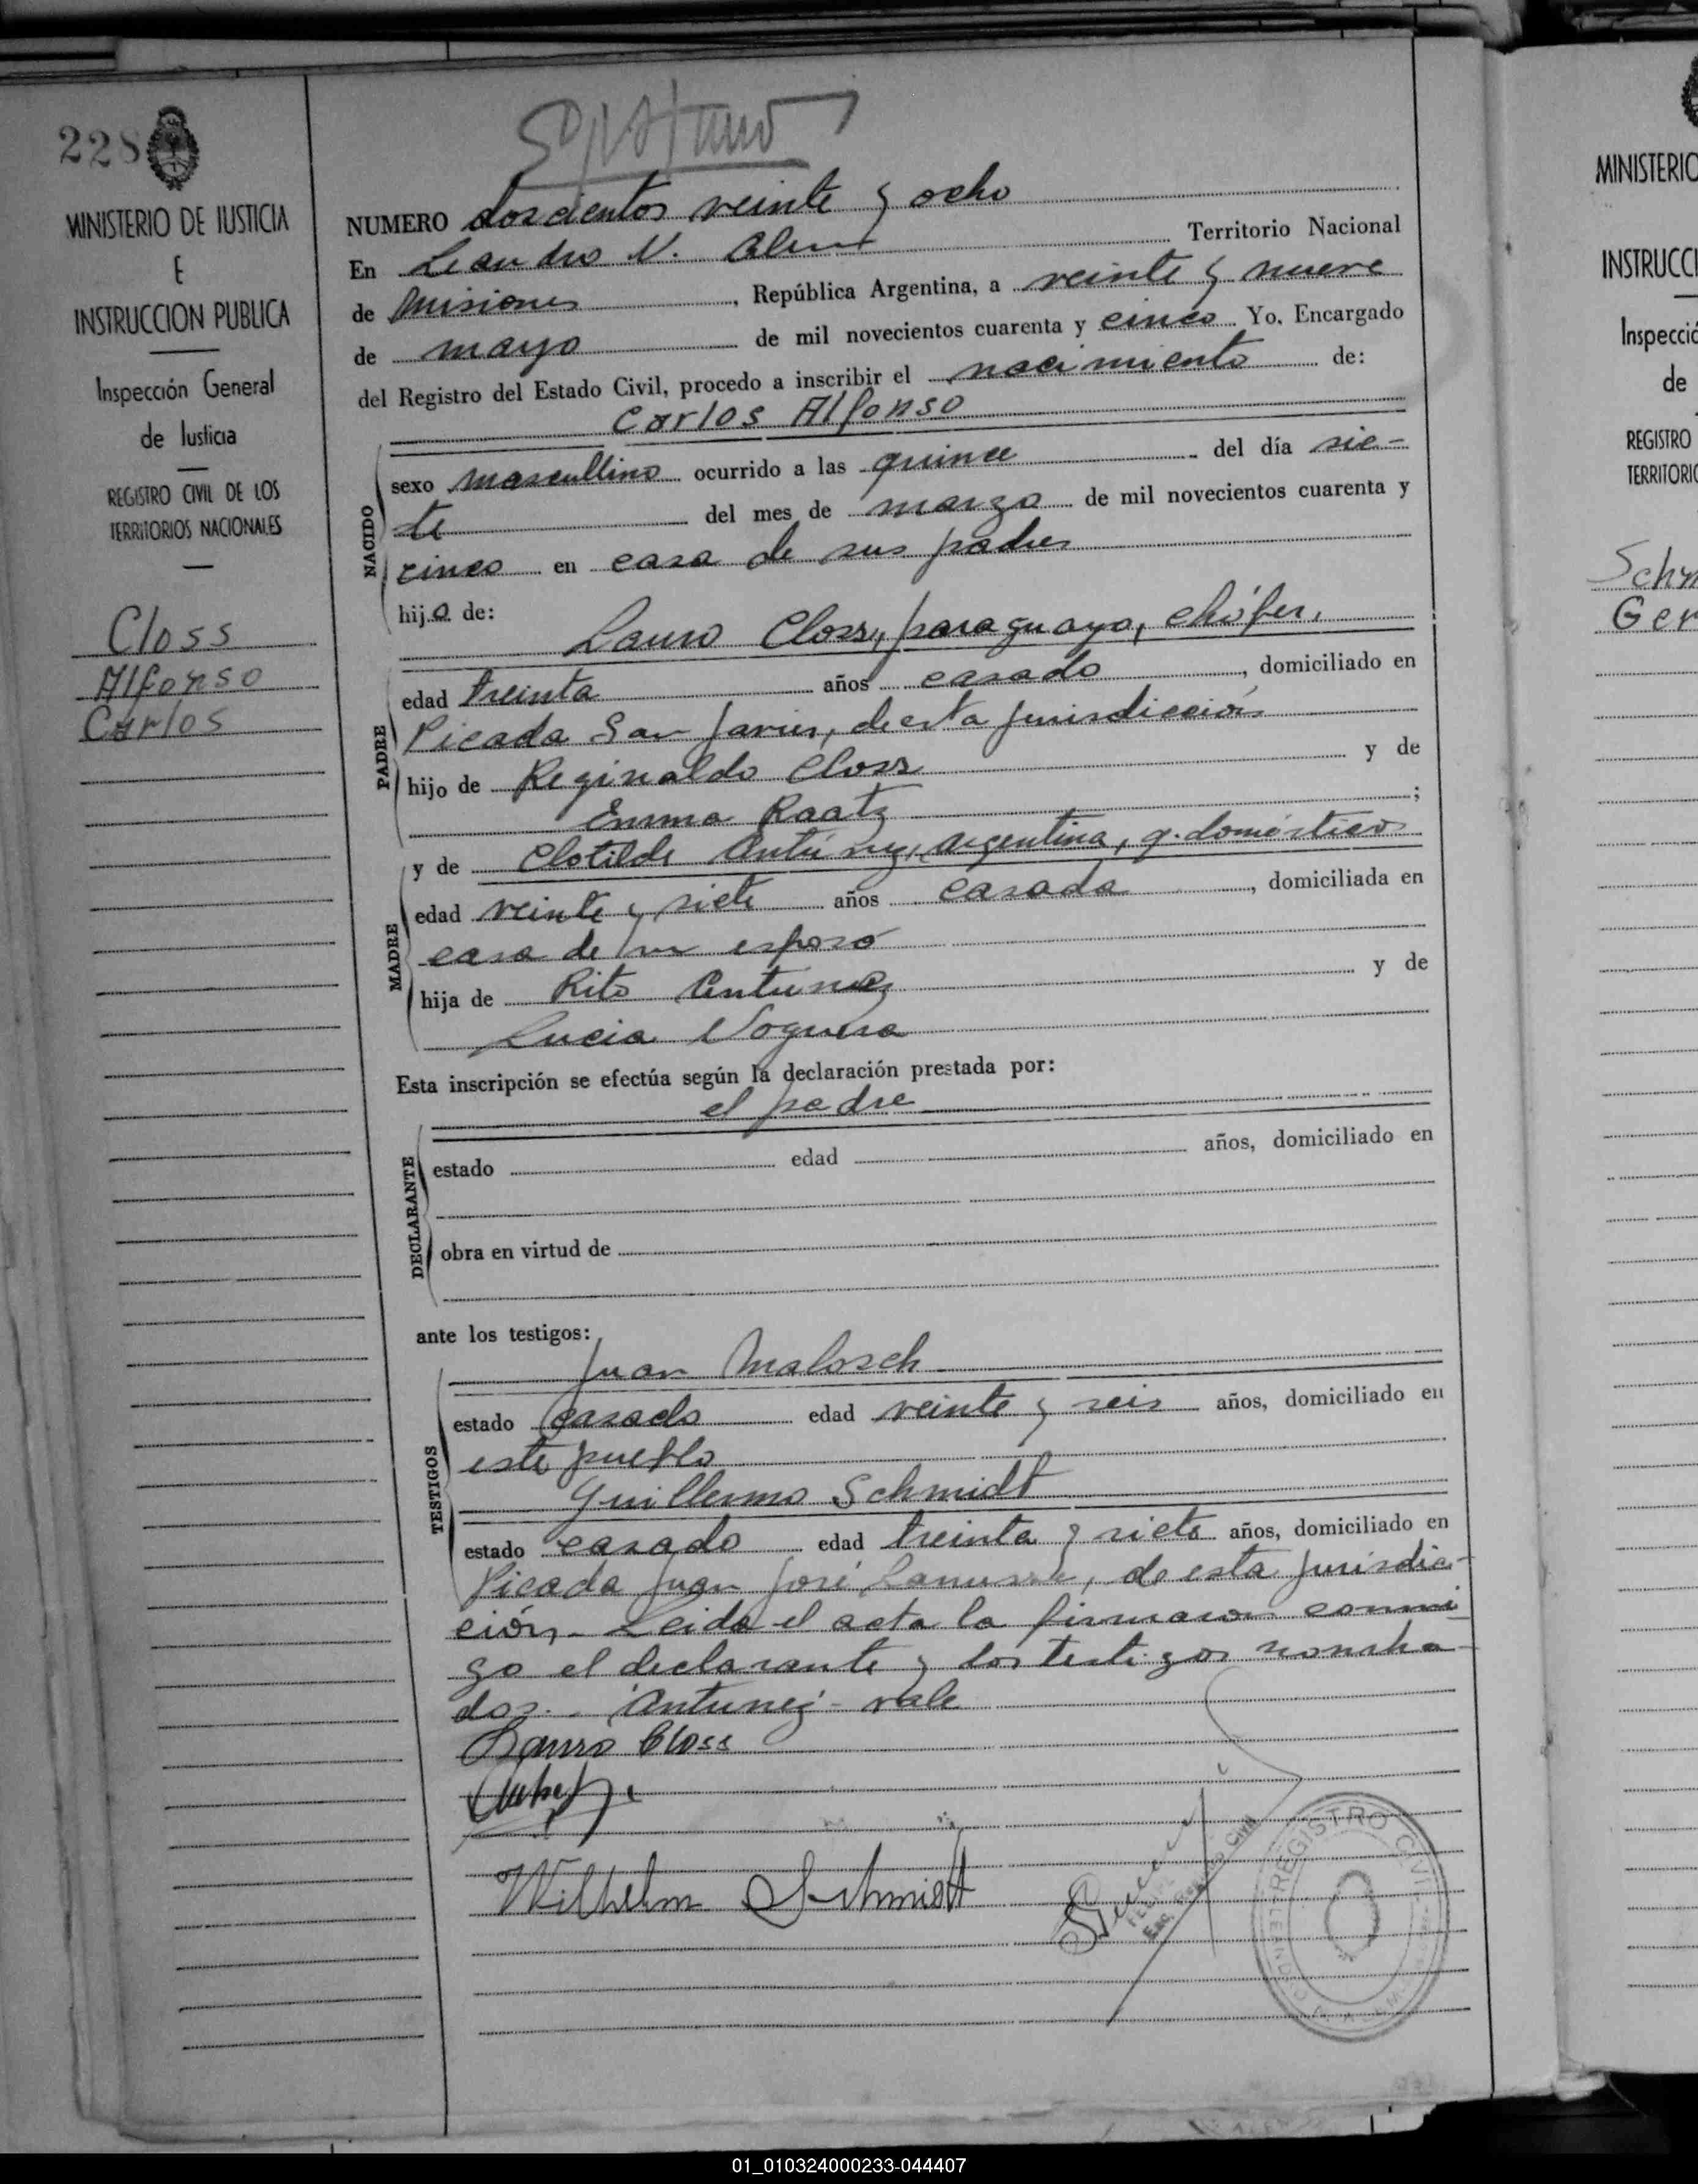 228
MINISTERIO DE JUSTICIA
E
INSTRUCCION PUBLICA
Inspección General
de Justicia
REGISTRO CIVIL DE LOS
TERRITORIOS NACIONALES
Closs
Alfonso
Carlos
NUMERO doscientos veinte y ocho
En Leandro N. Alem Territorio Nacional
de Misiones, República Argentina, a veinte y nueve
de mayo de mil novecientos cuarenta y cinco Yo, Encargado
del Registro del Estado Civil, procedo a inscribir el nacimiento de:
Carlos Alfonso
NACIDO
sexo mascullino ocurrido a las quince del día sie-
te del mes de marzo de mil novecientos cuarenta y
cinco en casa de sus padres
hijo de:
Lauro Closs, paraguayo, chófer,
PADRE
edad treinta años casado, domiciliado en
Picada San Javier, de esta jurisdicción
hijo de Reginaldo Closs y de
Emma Raatz;
y de Clotilde Antúnez, argentina, q. domésticos
MADRE
edad veinte y siete años casada, domiciliada en
casa de su esposo
hija de Rito Antunez y de
Lucia Noguera
Esta inscripción se efectúa según la declaración prestada por:
el padre
DECLARANTE
estado edad años, domiciliado en
obra en virtud de
ante los testigos:
Juan Malosch
TESTIGOS
estado casado edad veinte y seis años, domiciliado en
este pueblo
Guillermo Schmidt
estado casado edad treinta y siete años, domiciliado en
Picada Juan José Lanusse, de esta jurisdic-
ción. Leida el acta la firmaron conmi
go el declarante y los testigos nombra-
dos. Antunez - vale
Lauro Closs
Wilhelm Schmidt
REGISTRO CIVIL
MINISTERIO
INSTRUCCI
Inspecció
de
REGISTRO
TERRITORIO
Schm
Ger
01_010324000233-044407